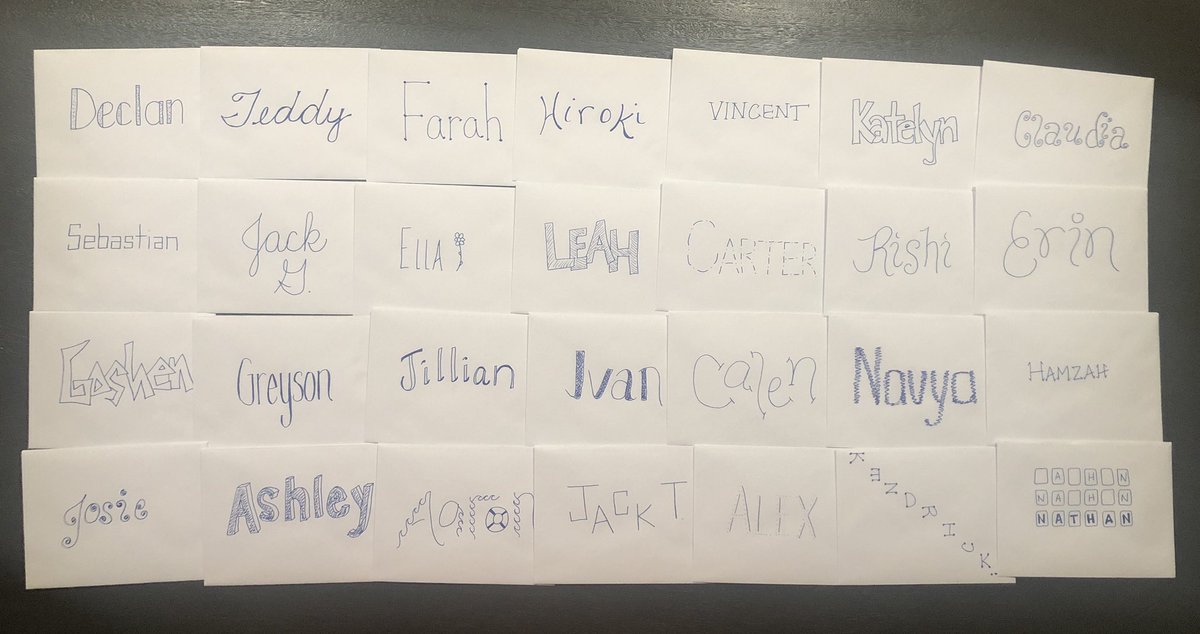 Declan
Teddy
Farah
Hiroki
VINCENT
Katelyn
Claudia
Sebastian
Jack
G.
ELLA
LEAH
CARTER
Rishi
Erin
Goshen
Greyson
Jillian
Ivan
Calen
Navya
HAMZAH
Josie
Ashley
JACK T.
ALEX
KENDRICK
A H N
NA H N
NATHAN